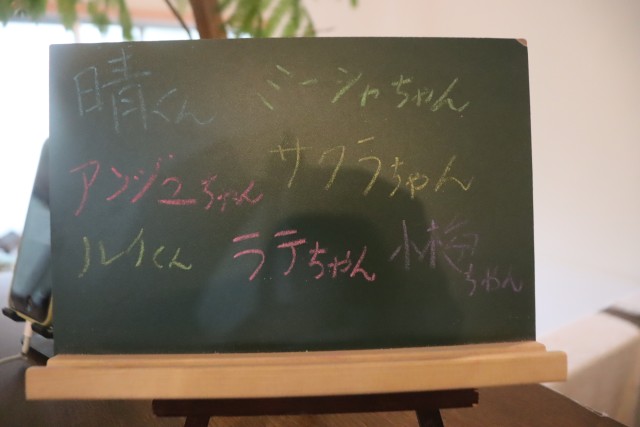 晴くん ミーシャちゃん
アンジュちゃん サクラちゃん
ルイくん ラテちゃん 小梅ちゃん